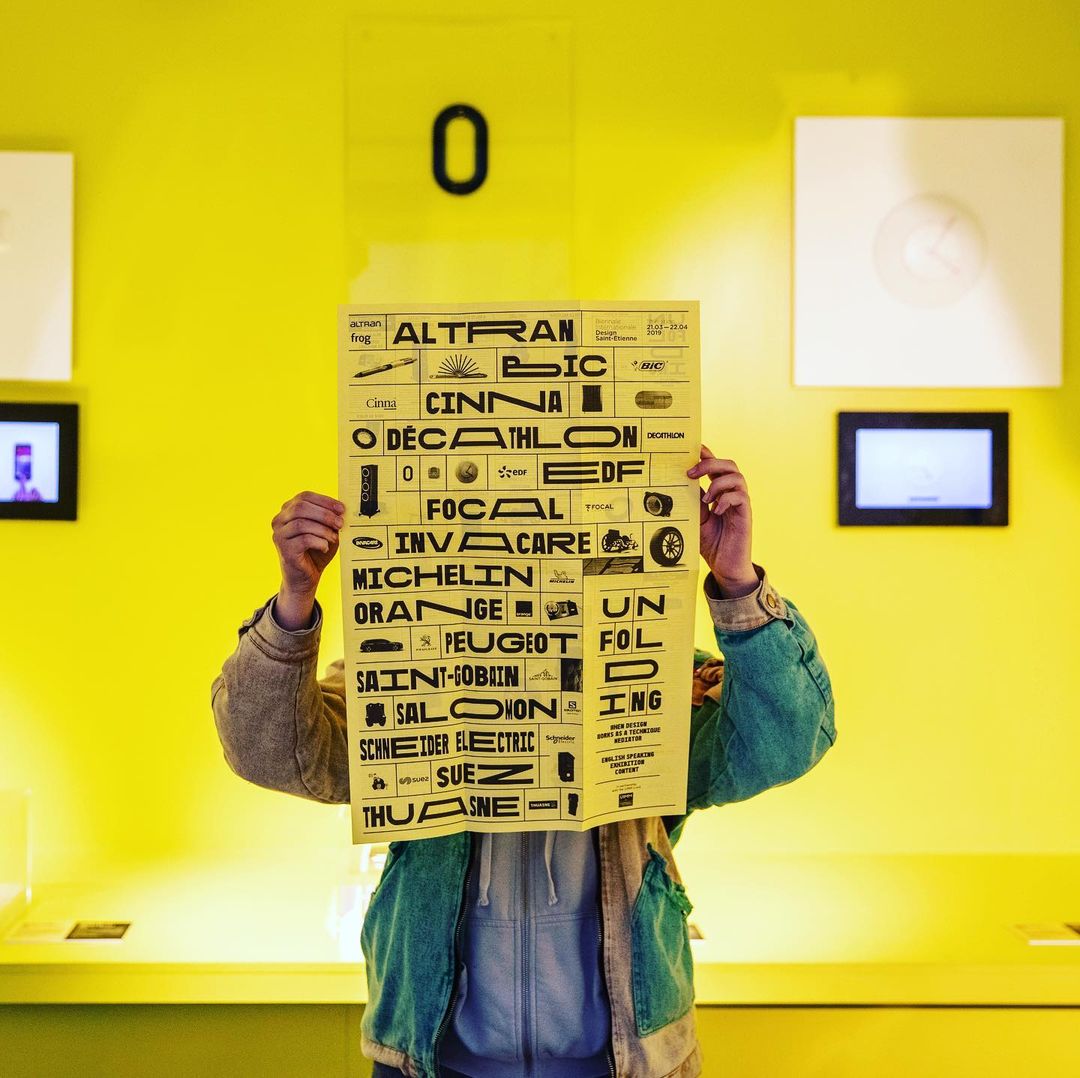 0
altran
frog
ALTRAN
Biennale
Internationale
Design
Saint-Étienne
21.03—22.04
2019
BIC
BIC
Cinna
CINNA
DÉCATHLON
DECATHLON
0
eDF
EDF
FOCAL
FOCAL
INVACARE
INVACARE
MICHELIN
MICHELIN
ORANGE
orange
PEUGEOT
PEUGEOT
SAINT-GOBAIN
SAINT-GOBAIN
SALOMON
SALOMON
SCHNEIDER ELECTRIC
Schneider
Electric
suez
SUEZ
THUASNE
THUASNE
UN
FOL
D
ING
WHEN DESIGN
WORKS AS A TECHNIQUE
MEDIATOR
ENGLISH SPEAKING
EXHIBITION
CONTENT